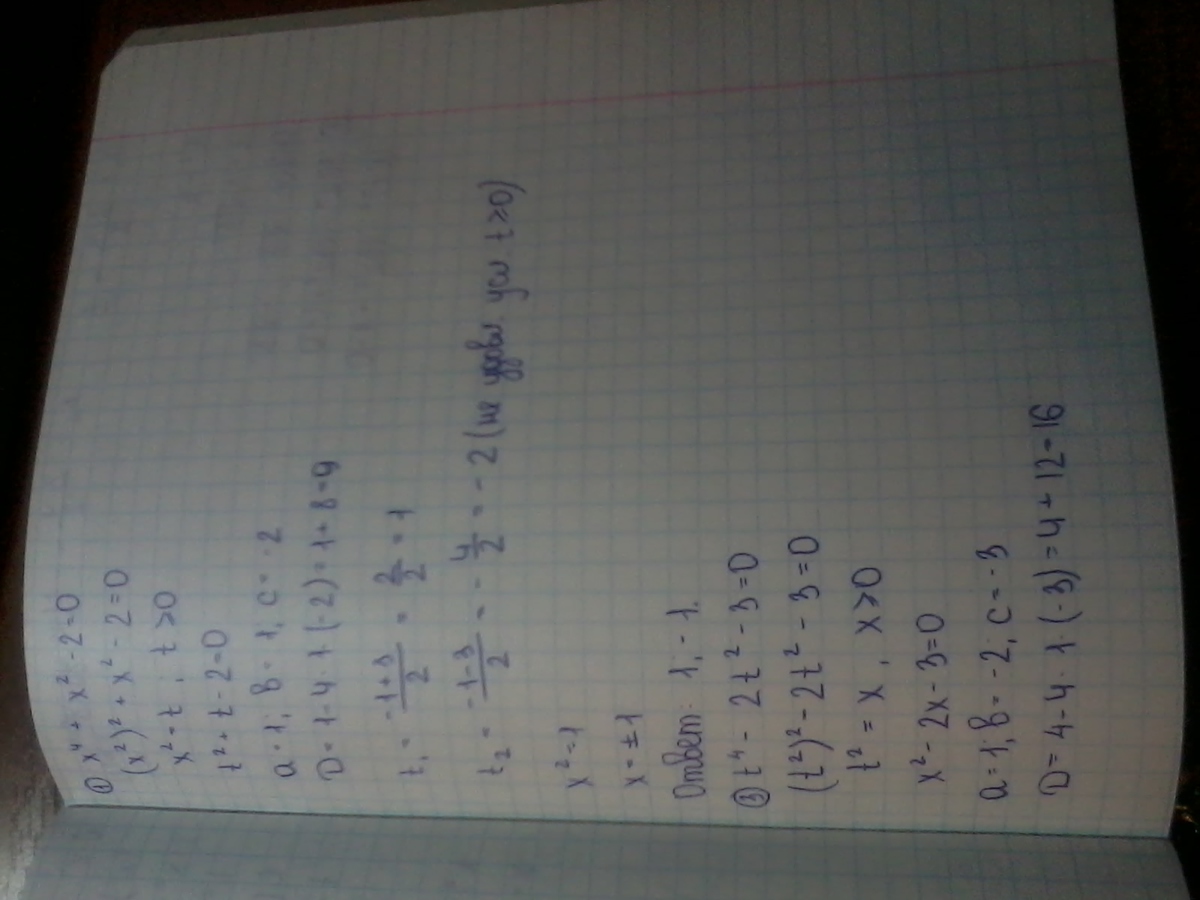 ① x⁴ + x² - 2 = 0
(x²)² + x² - 2 = 0
x² = t, t ≥ 0
t² + t - 2 = 0
a = 1; b = 1, c = -2
D = 1 - 4 · 1 (-2) = 1 + 8 = 9
t₁ = \frac{-1+3}{2} = \frac{2}{2} = 1
t₂ = \frac{-1-3}{2} = -\frac{4}{2} = -2 (не удовл усл t ≥ 0)
x² = 1
x = ± 1
Ответ: 1, -1.
③ t⁴ - 2t² - 3 = 0
(t²)² - 2t² - 3 = 0
t² = x, x ≥ 0
x² - 2x - 3 = 0
a = 1; b = -2; c = -3
D = 4 - 4 · 1 · (-3) = 4 + 12 = 16